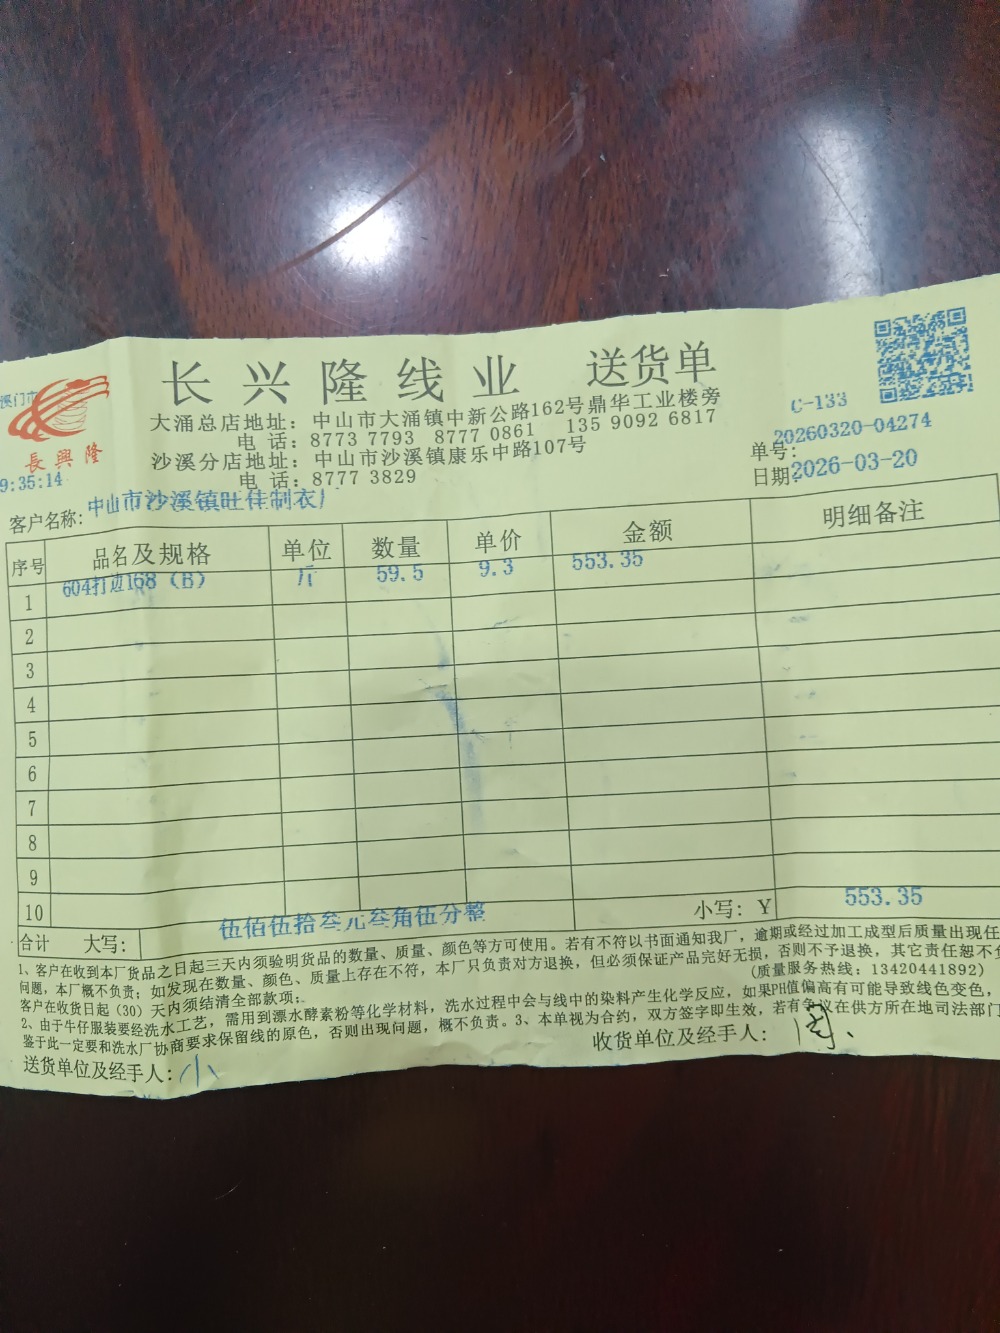 长兴隆线业 送货单
大涌总店地址: 中山市大涌镇中新公路162号鼎华工业楼旁
电 话: 8773 7793 8777 0861 135 9092 6817
沙溪分店地址: 中山市沙溪镇康乐中路107号
电 话: 8777 3829
溪门市
長興隆
9:35:14
C-133
单号: 20260320-04274
日期: 2026-03-20
客户名称: 中山市沙溪镇旺佳制衣厂
序号 品名及规格 单位 数量 单价 金额 明细备注
1 604打边168 (B) 斤 59.5 9.3 553.35
2
3
4
5
6
7
8
9
10
合计 大写: 伍佰伍拾叁元叁角伍分整 小写: Y 553.35
1、客户在收到本厂货品之日起三天内须验明货品的数量、质量、颜色等方可使用。若有不符以书面通知我厂，逾期或经过加工成型后质量出现任
问题，本厂概不负责；如发现在数量、颜色、质量上存在不符，本厂只负责对方退换，但必须保证产品完好无损，否则不予退换，其它责任恕不负
客户在收货日起（30）天内须结清全部款项；
(质量服务热线: 13420441892)
2、由于牛仔服装要经洗水工艺，需用到漂水酵素粉等化学材料，洗水过程中会与线中的染料产生化学反应，如果PH值偏高有可能导致线色变色，
鉴于此一定要和洗水厂协商要求保留线的原色，否则出现问题，概不负责。3、本单视为合约，双方签字即生效，若有争议在供方所在地司法部门
送货单位及经手人: 小
收货单位及经手人: